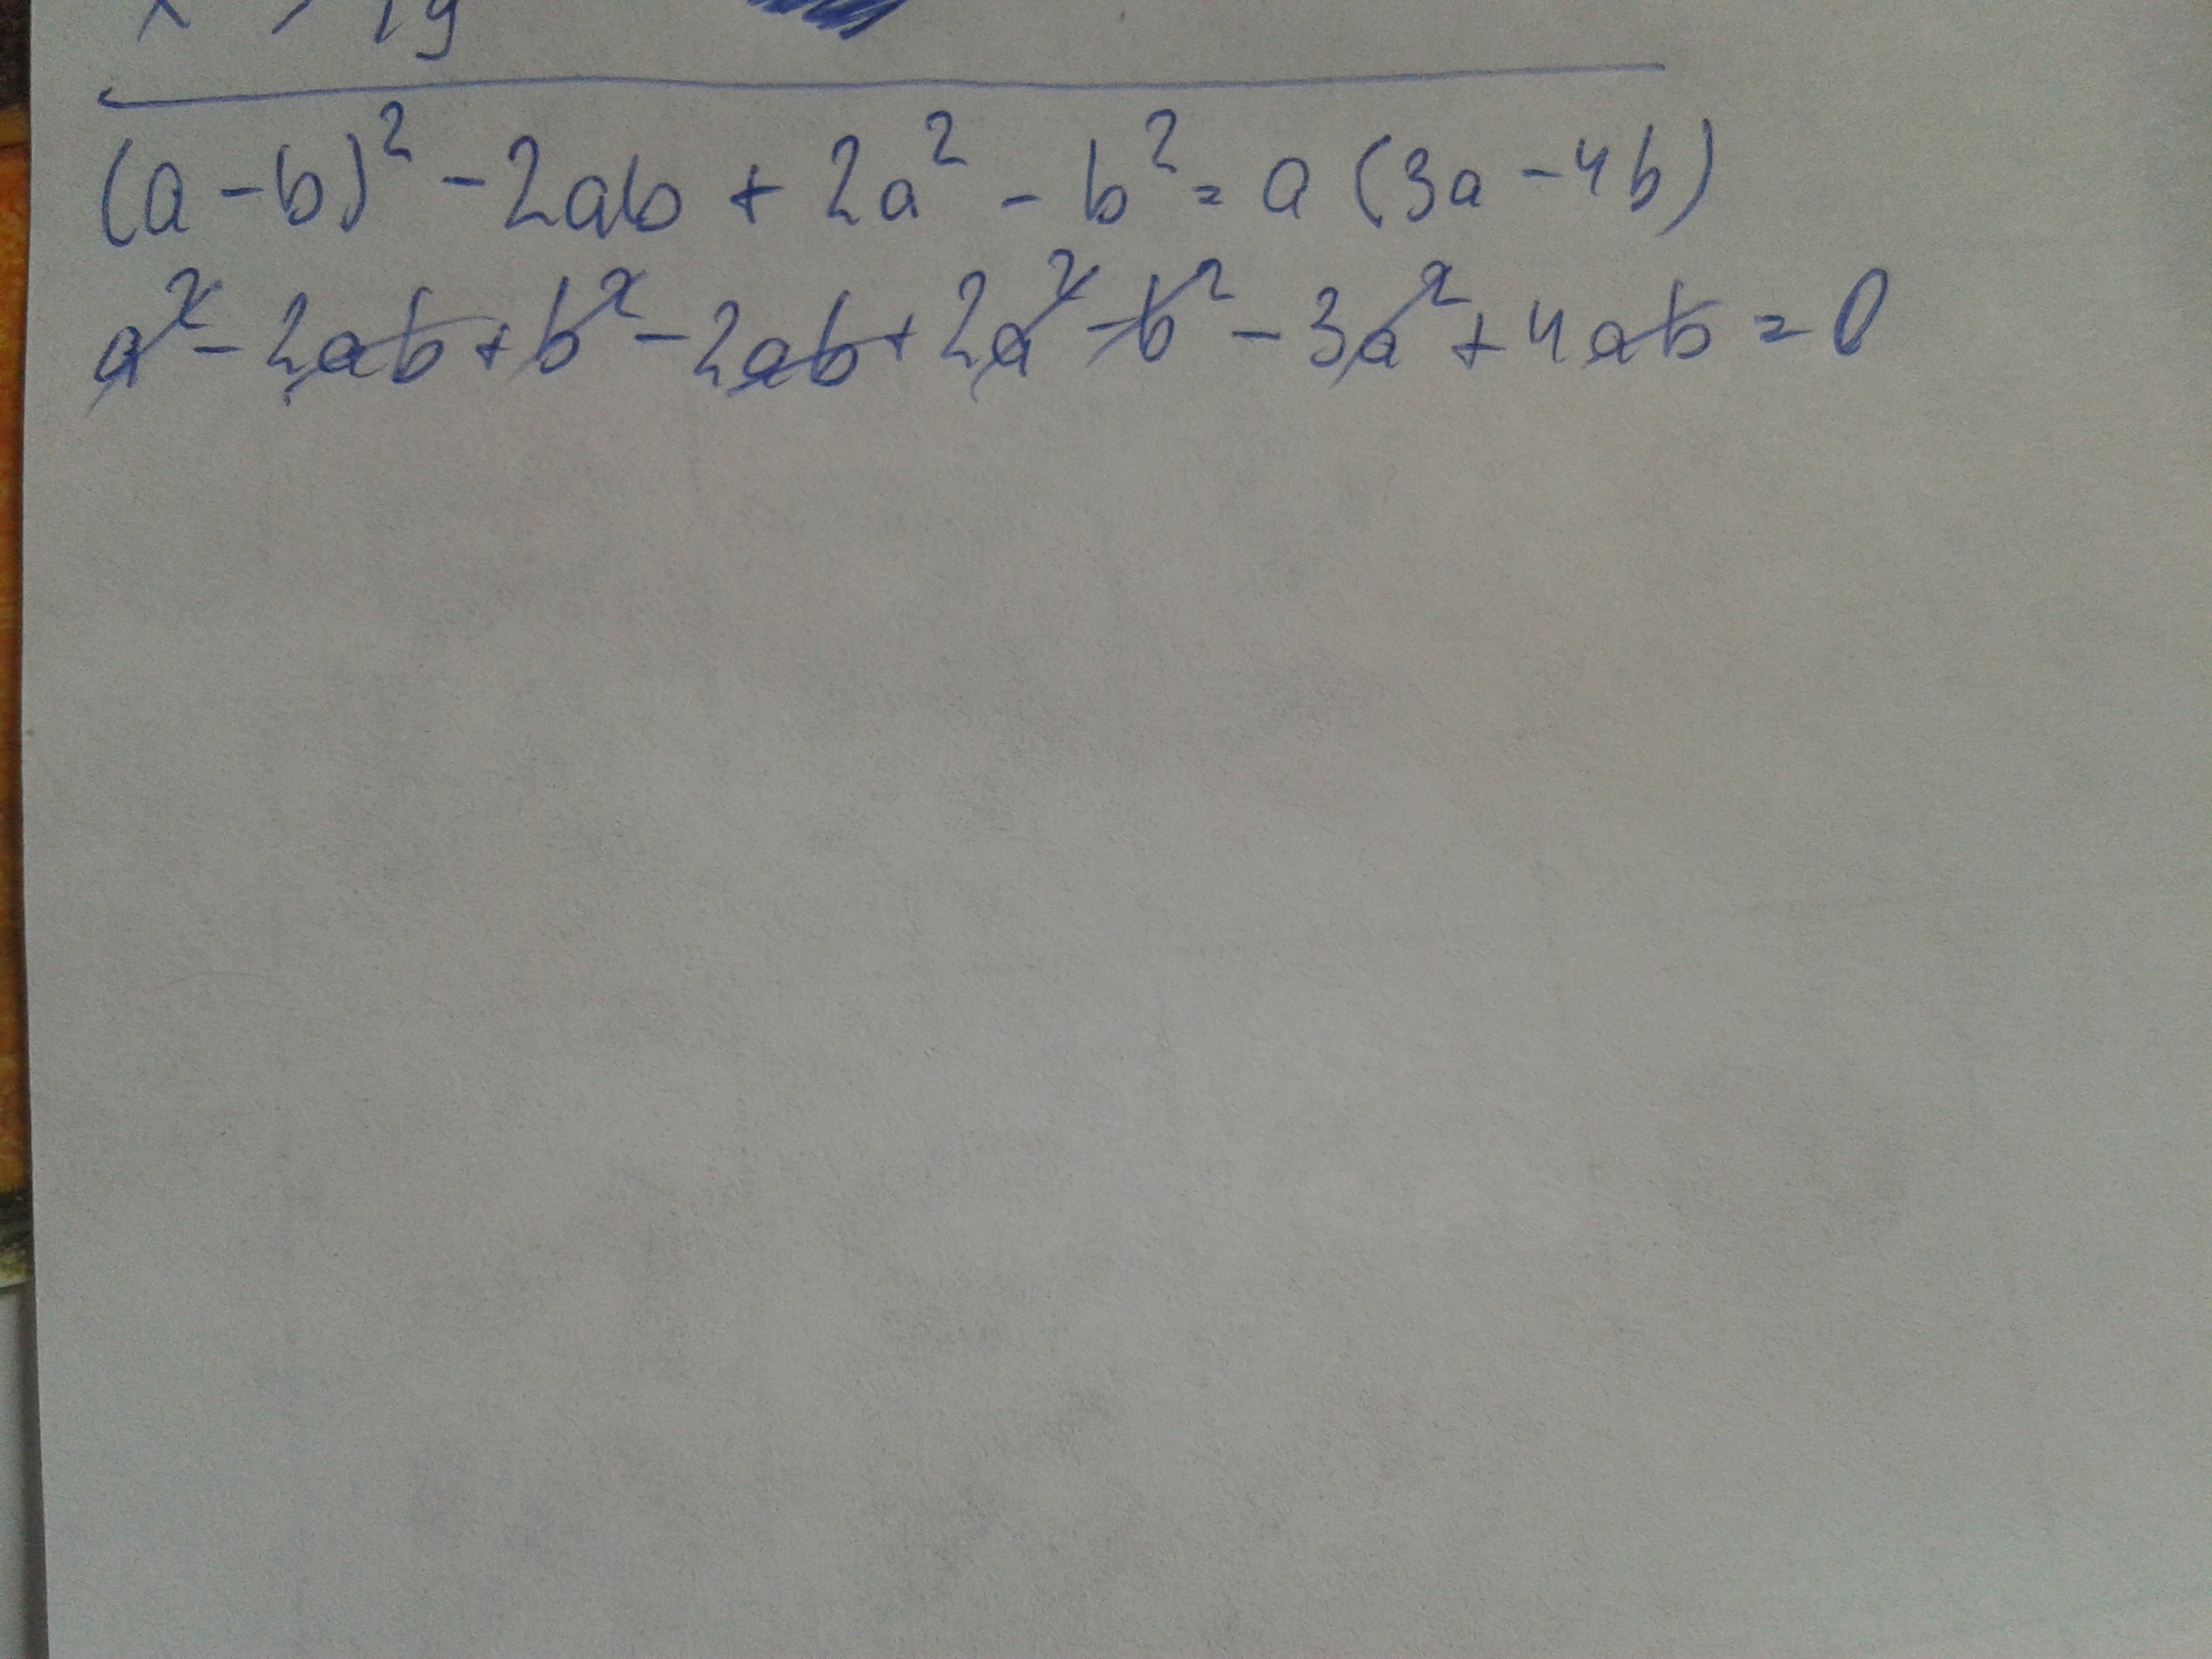 (a-b)² - 2ab + 2a² - b² = a (3a - 4b)
a² - 2ab + b² - 2ab + 2a² - b² - 3a² + 4ab = 0